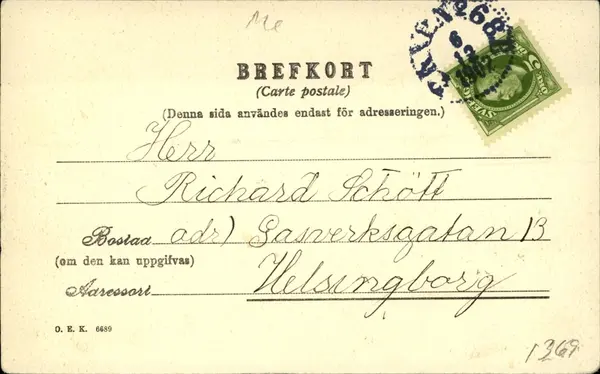 Me
6
12
1902
5
SVERIGE
BREFKORT
(Carte postale)
(Denna sida användes endast för adresseringen.)
Herr
Richard Schött
Bostad adr) Gasverksgatan 13
(om den kan uppgifvas)
Helsingborg
Adressort
O. E. K. 6689
1369